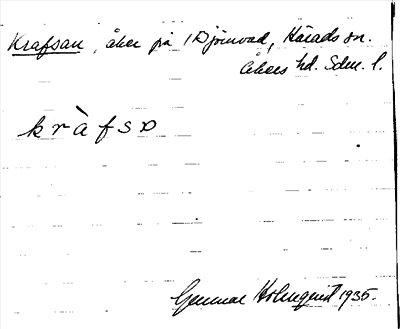 Krafsan, åker på Djurvad, Härads sn.
Åkers hd. Sdm. l.
kràfsɒ
Gunnar Holmquist 1935.